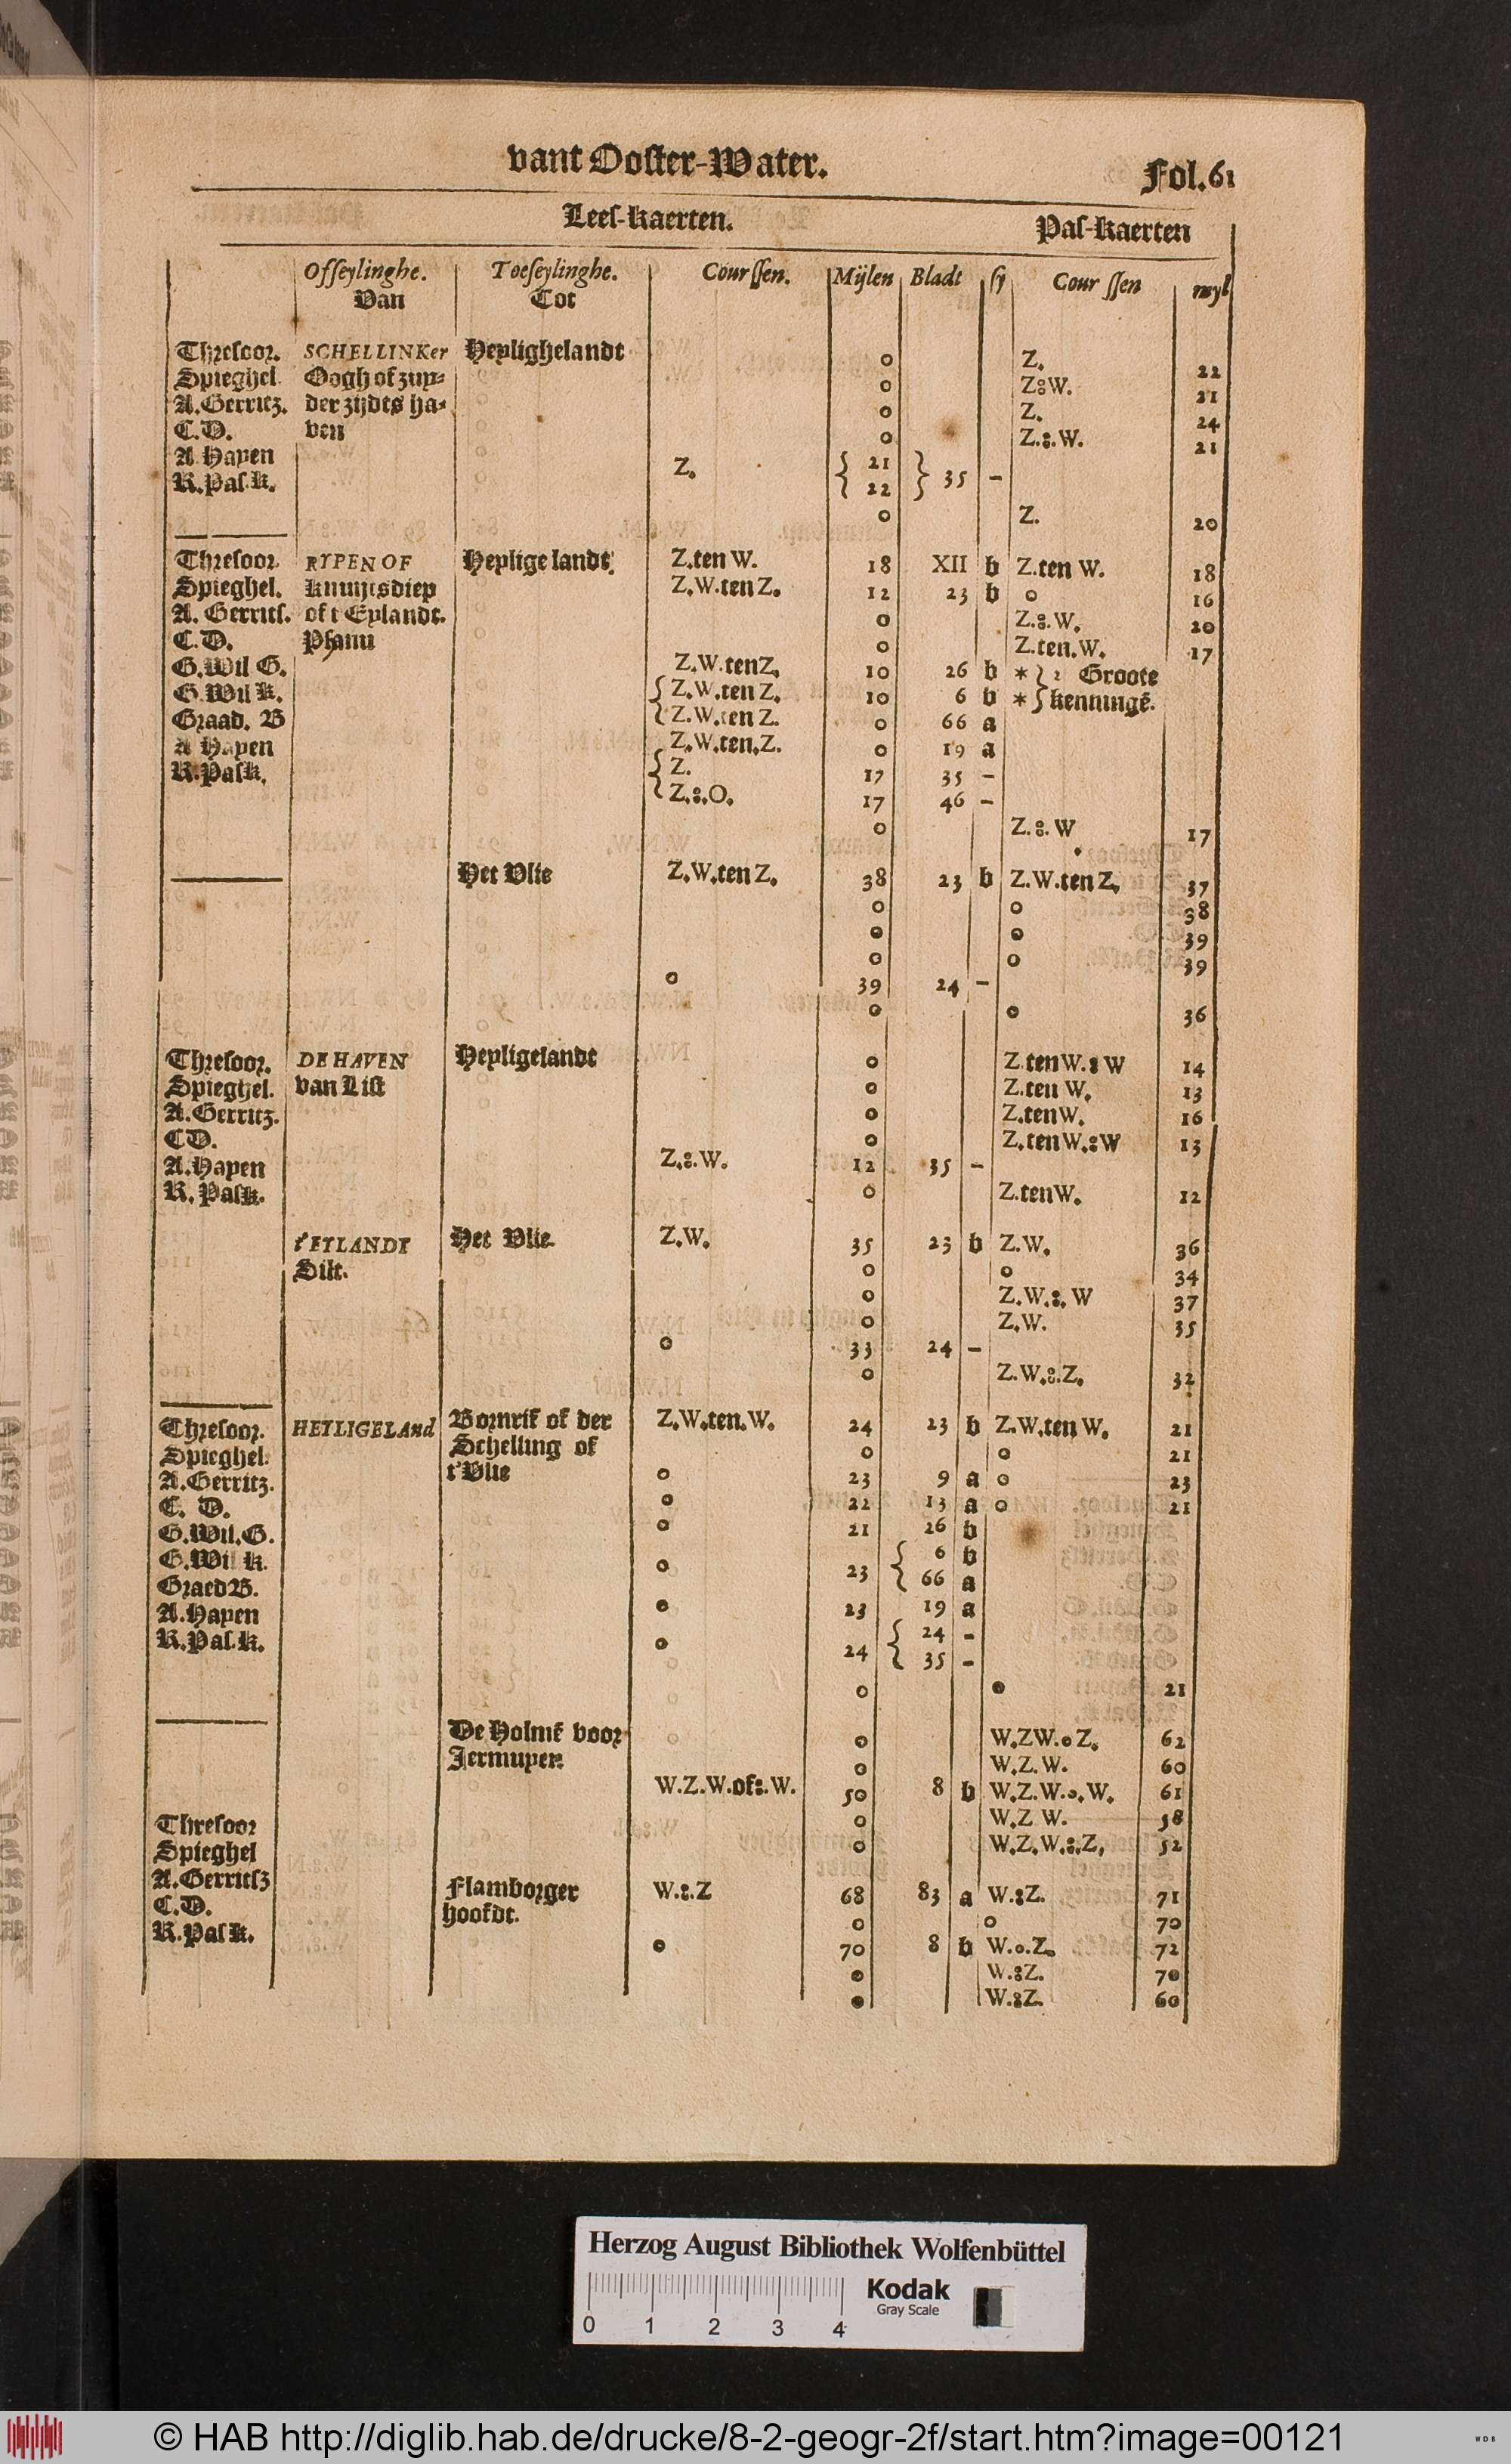 vant Ooster-Water. Fol.61
Lees-kaerten. Pas-kaerten
Offeylinghe. Toeseylinghe. Courssen. Mijlen Bladt sy Courssen myl
Van Tot
Thresoor. SCHELLINKer Heylighelandt o Z. 22
Spieghel. Oogh of zuy- o Z:W. 21
A.Gerritz. der zijdts ha- o Z. 24
C.D. ven o Z.:.W. 21
A Hayen Z. { 21 } 35 -
R.Pas.k. { 22 }
o Z. 20
Thresoor. RYPEN OF Heylige landt. Z.ten W. 18 XII b Z.ten W. 18
Spieghel. knuytsdiep Z.W.ten Z. 12 23 b o 16
A. Gerrits. of t Eylandt. o Z.:.W. 20
C.D. Phanu o Z.ten.W. 17
G.Wil G. Z.W.tenZ, 10 26 b * } 2 Groote
G.Wil k. { Z.W.ten Z. 10 6 b * } kenningē.
Graad. B { Z.W.ten Z. o 66 a
A Hayen Z.W.ten.Z. o 19 a
R.Pask. { Z. 17 35 -
{ Z.:.O. 17 46 -
o Z.:.W 17
Het Vlie Z.W.ten Z. 38 23 b Z.W.ten Z, 37
o o 38
o o 39
o o 39
o 39 24 -
o o 36
Thresoor. DE HAVEN Heyligelandt o Z.tenW.:W 14
Spieghel. van List o Z.ten W. 13
A.Gerritz. o Z.tenW. 16
CD. o Z.tenW.:W 13
A.Hayen Z.:.W. 12 35 -
R. Pask. o Z.tenW. 12
t'EYLANDT Het Vlie. Z.W. 35 23 b Z.W. 36
Silt. o o 34
o Z.W.:.W 37
o Z.W. 35
o 33 24 -
o Z.W.:.Z. 32
Thresoor. HEYLIGELAnd Bornrif of der Z.W.ten.W. 24 23 b Z.W.ten W. 21
Spieghel. Schelling of o o 21
A.Gerritz. t'Vlie o 23 9 a o 23
C. D. o 22 13 a o 21
G.Wil.G. o 21 26 b
G.Wil k. o 23 { 6 b
GraedB. { 66 a
A.Hayen o 23 19 a
R.Pas.k. o 24 { 24 -
{ 35 -
o o 21
De Holmē voor o W.ZW.o Z. 62
Jermuyen o W.Z.W. 60
W.Z.W.of:.W. 50 8 b W.Z.W.o.W. 61
Thresoor o W.Z W. 58
Spieghel o W.Z.W.:.Z, 52
A.Gerritsz Flamborger W.:.Z 68 83 a W.:Z. 71
C.D. hoofdt. o o 70
R.Pas k. o 70 8 b W.o.Z. 72
o W.:Z. 70
o W.:Z. 60
Herzog August Bibliothek Wolfenbüttel
Kodak
Gray Scale
0 1 2 3 4
© HAB http://diglib.hab.de/drucke/8-2-geogr-2f/start.htm?image=00121
WDB